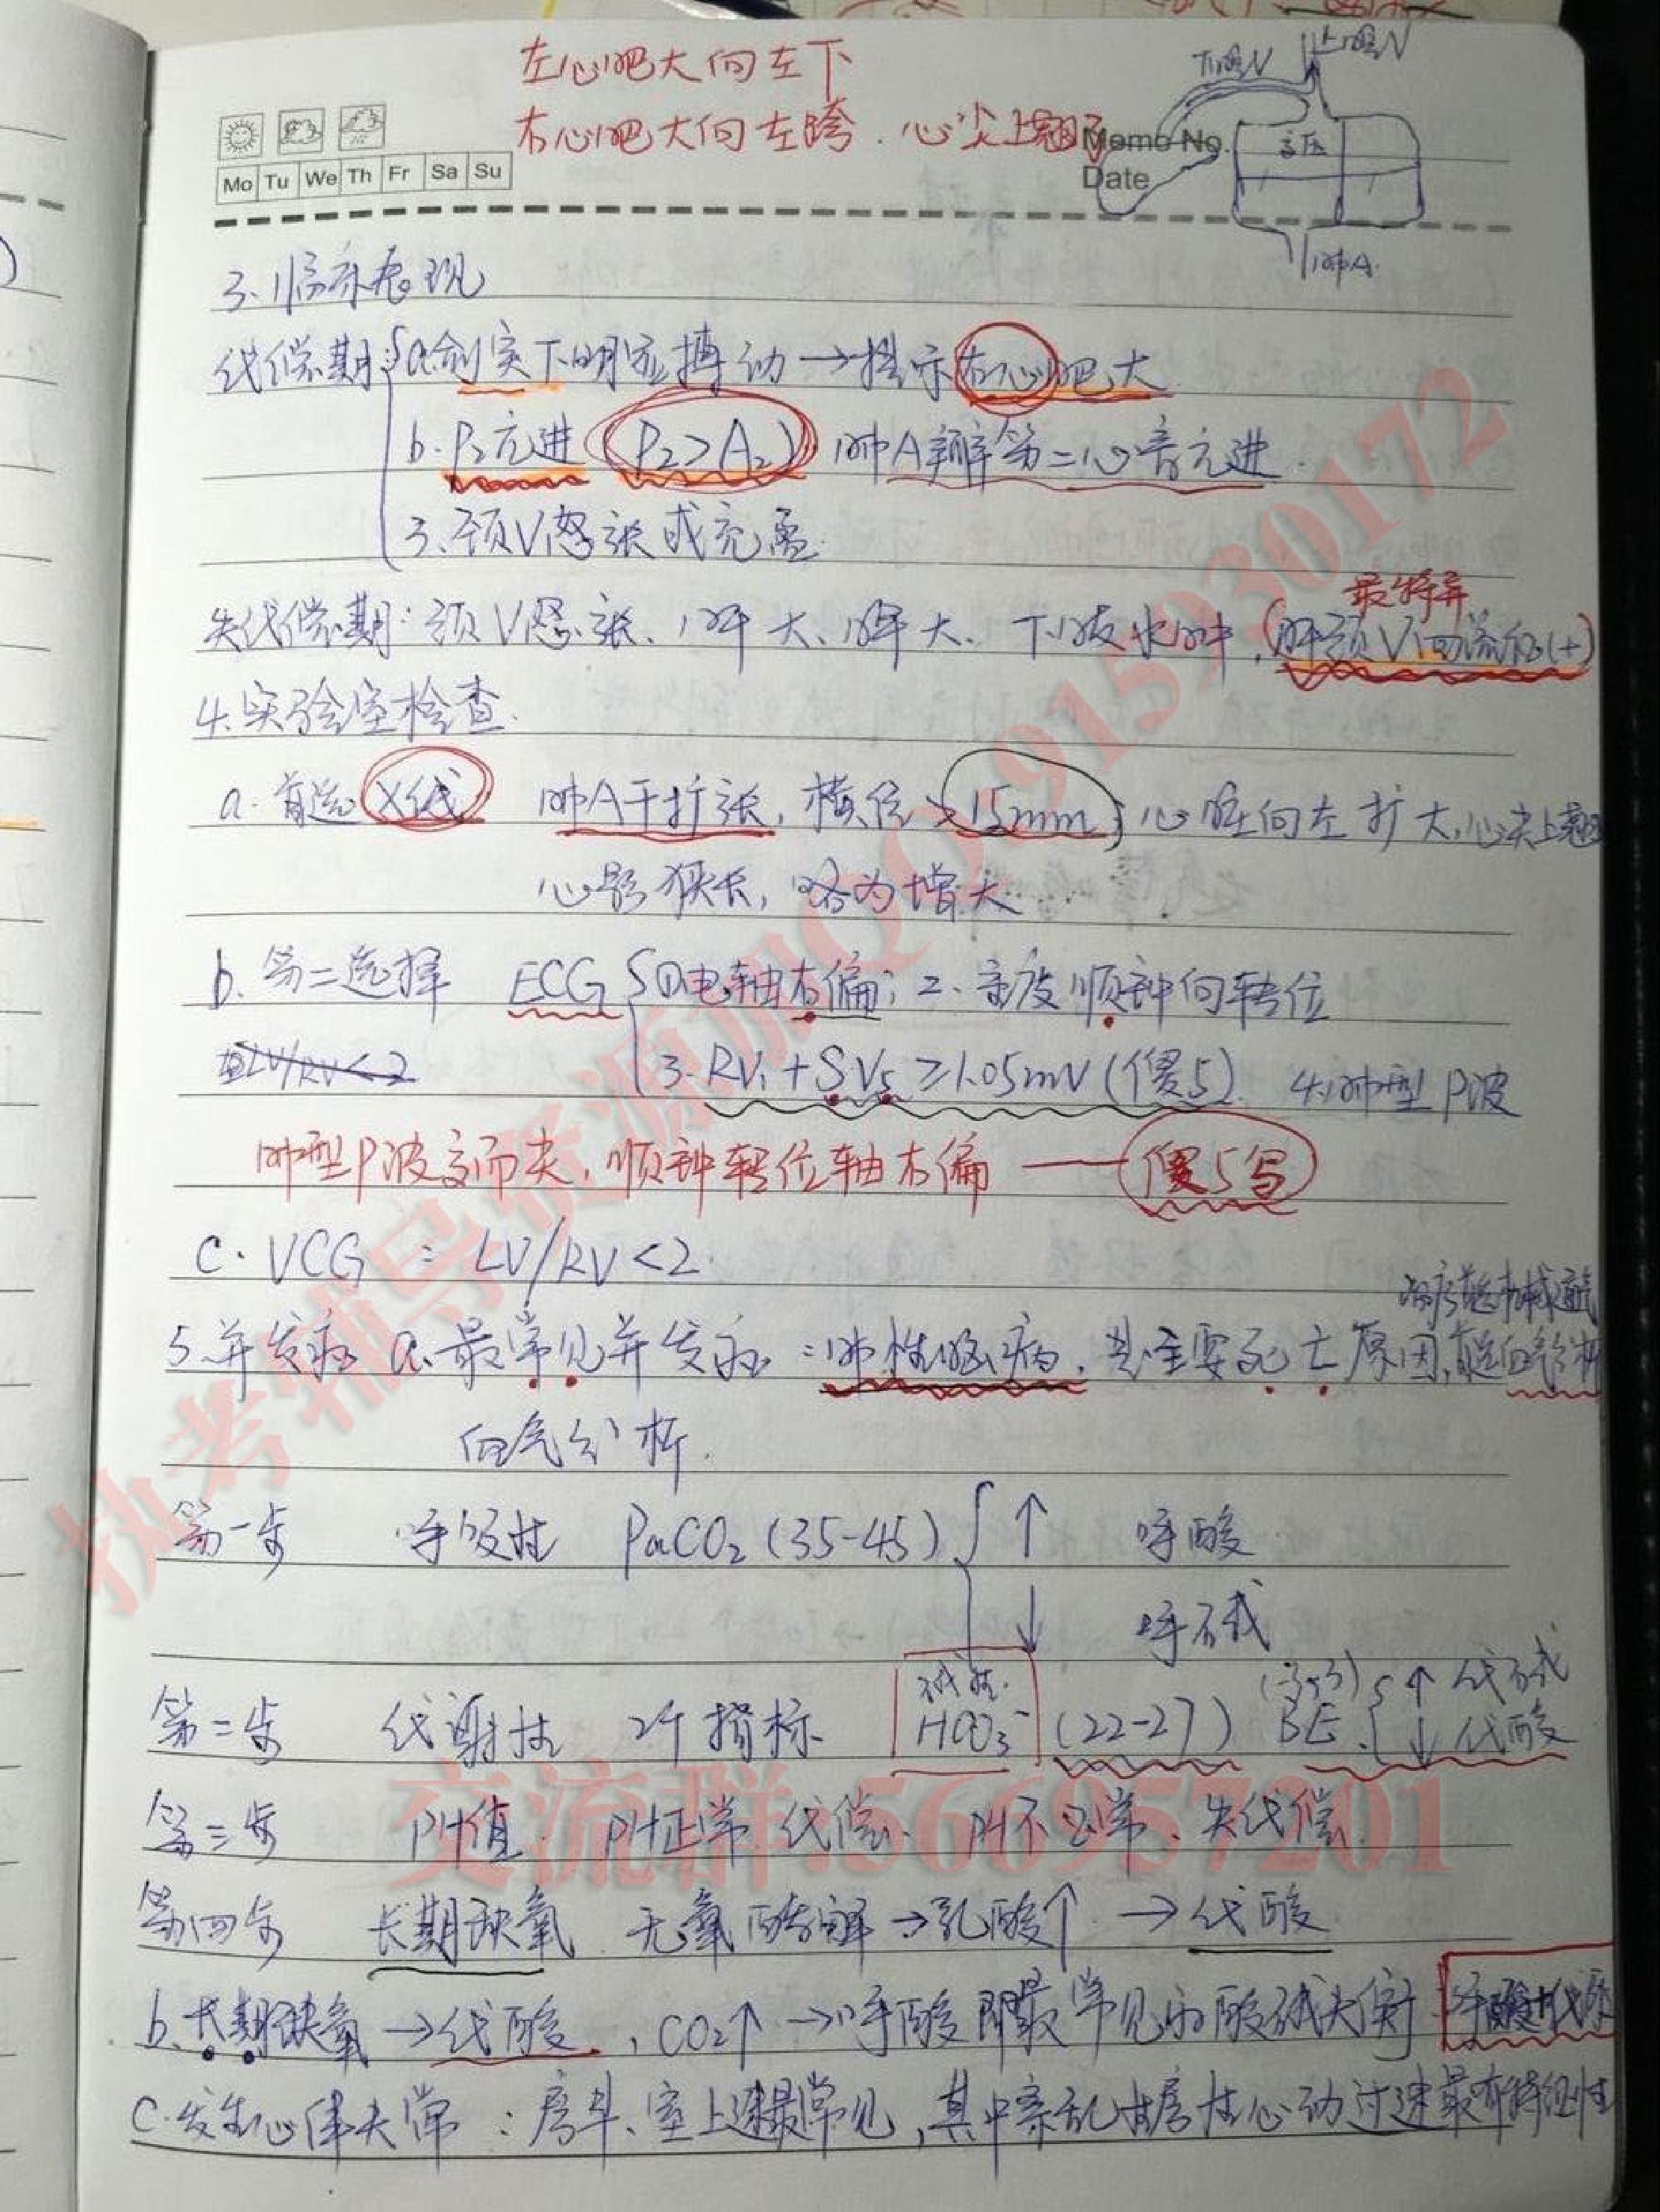 左心肥大向左下
右心肥大向左跨.心尖上翘了
下腔V
上腔V
高压
肺A.
Memo No.
Date
Mo Tu We Th Fr Sa Su
3.临床表现
代偿期: a.剑突下明显搏动→提示右心肥大
b.P₂亢进(P₂>A₂) 肺A瓣第二心音亢进.
3.颈V怒张或充盈.
失代偿期:颈V怒张、肝大、脾大、下肢水肿,(肝颈V回流征(+)
最特异
4.实验室检查.
a.首选X线 肺A干扩张,横径>15mm;心脏向左扩大,心尖上翘
心影狭长,略为增大
b.第二选择 ECG ①电轴右偏; 2.重度顺钟向转位
LV/RV<2 3.RV₁+SV₅≥1.05mV(傻5). 4.肺型P波
肺型P波高而尖,顺钟转位轴右偏——傻5写
C.VCG:LV/RV<2.
机械通气
5.并发症 a.最常见并发症:肺性脑病,其主要死亡原因,首选血气分析
血气分析.
第一步 呼吸性 PaCO₂(35-45) ↑ 呼酸
↓ 呼碱
第二步 代谢性 2个指标 碱性 HCO₃⁻ (22-27) (-3~3) BE ↑代碱
↓代酸
第三步 PH值. PH正常 代偿. PH不正常、失代偿.
第四步 长期缺氧 无氧酵解→乳酸↑→代酸
b.长期缺氧→代酸.,CO₂↑→呼酸即最常见的酸碱失衡 呼酸+代酸
C.发生心律失常:房早、室上速最常见,其中紊乱性房性心动过速最有特征性
执考辅导资源加QQ:915930172
交流群:566957201